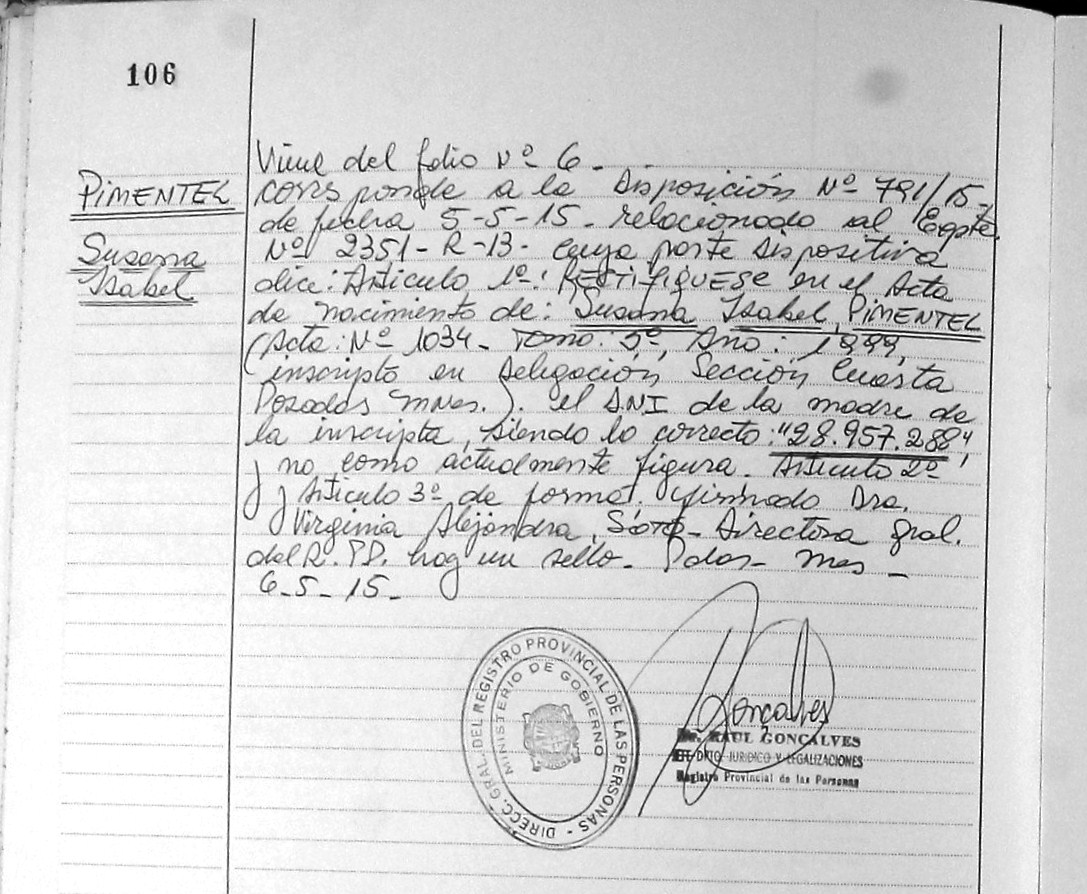 106
PIMENTEL
Susana
Isabel
Viene del folio Nº 6 -
corresponde a la Disposición Nº 791/15-
de fecha 5-5-15- relacionado al Expte.
Nº 2351-R-13- cuya parte dispositiva
dice: Articulo 1º: RECTIFIQUESE en el Acta
de nacimiento de: Susana Isabel PIMENTEL
(Acta: Nº 1034- Tomo: 5º, Año: 1999,
inscripto en Delegación Sección Cuarta
Posadas Mnes.). el DNI de la madre de
la inscripta, siendo lo correcto: "28.957.288"
y no como actualmente figura. Articulo 2º
y Articulo 3º de forma. firmado Dra.
Virginia Alejandra Soto- Directora Gral.
del R.PP. hay un sello- Pdas- Mnes-
6-5-15-
DIRECC. GRAL. DEL REGISTRO PROVINCIAL DE LAS PERSONAS -
MINISTERIO DE GOBIERNO
Gonçalves
Dr. RAUL GONCALVES
JEFE DPTO JURIDICO Y LEGALIZACIONES
Registro Provincial de las Personas